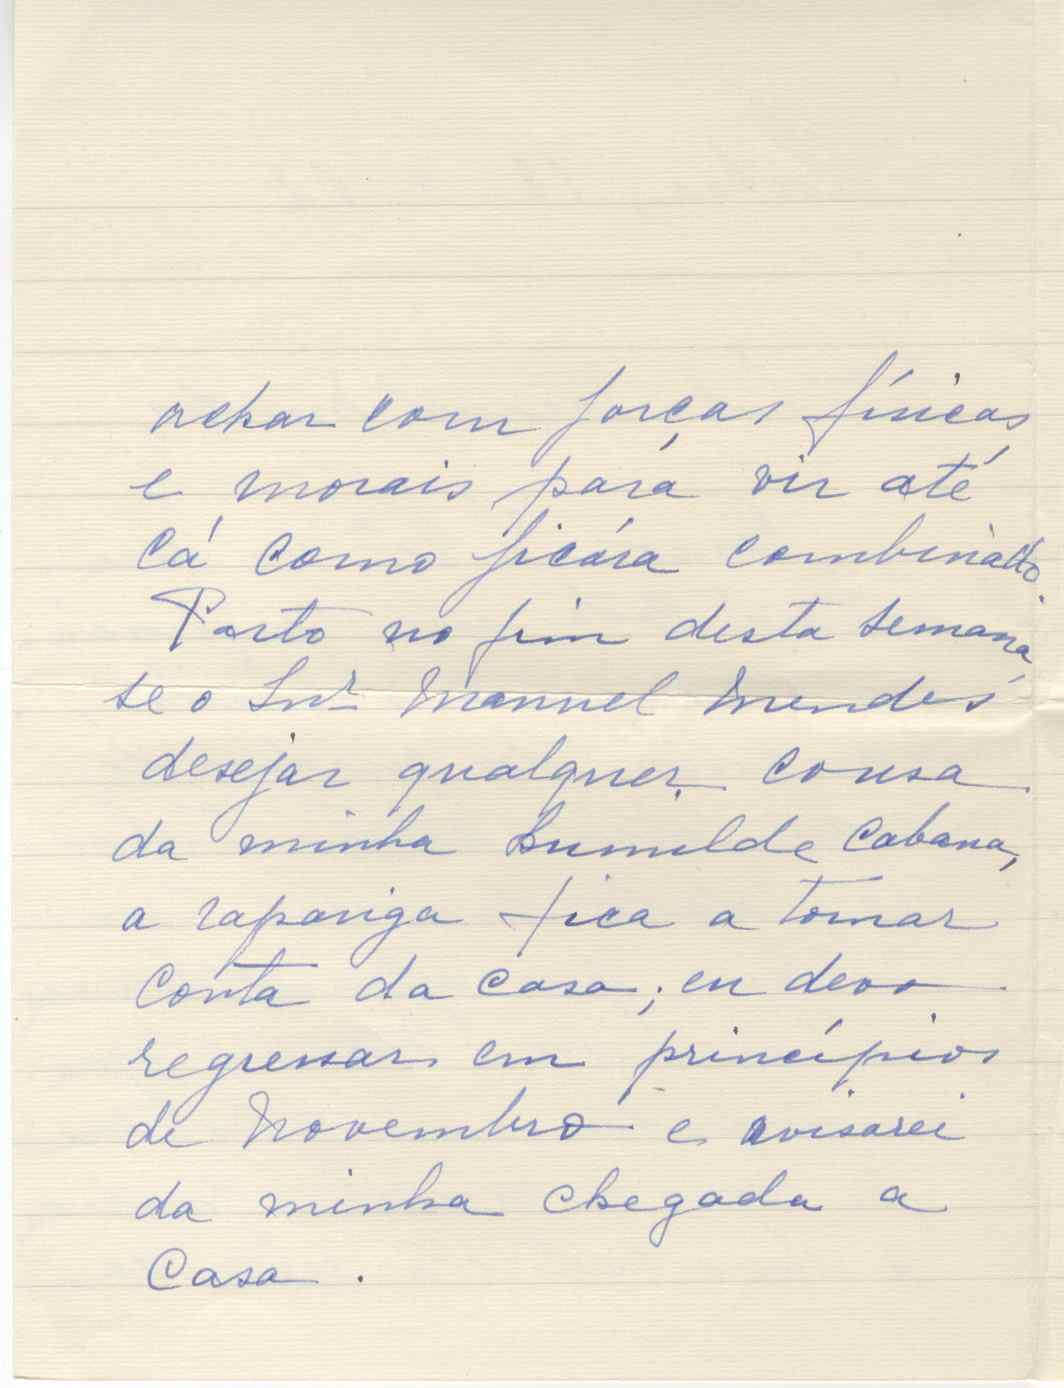 achar com forças físicas
e morais para vir até
cá como ficára combinado.
Parto no fim desta semana
se o Snr. Manuel Mendes
desejar qualquer cousa
da minha humilde Cabana,
a rapariga fica a tomar
Conta da casa; eu devo
regressar em princípios
de Novembro e avisarei
da minha chegada a
Casa.